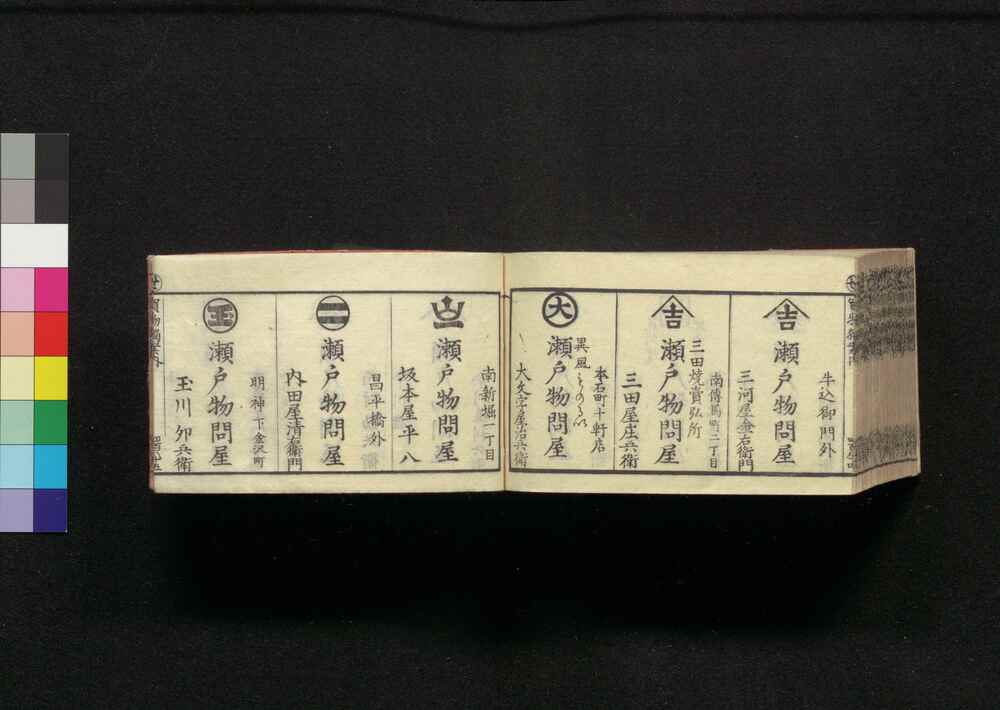 吉
瀬戸物問屋
牛込御門外
三河屋金右衛門
吉
瀬戸物問屋
三田焼賣弘所
南傳馬町二丁目
三田屋庄兵衛
大
瀬戸物問屋
異風
本石町十軒店
大文字屋治兵衛
瀬戸物問屋
南新堀一丁目
坂本屋平八
二
瀬戸物問屋
昌平橋外
内田屋清右衛門
玉
瀬戸物問屋
明神下金沢町
玉川卯兵衛